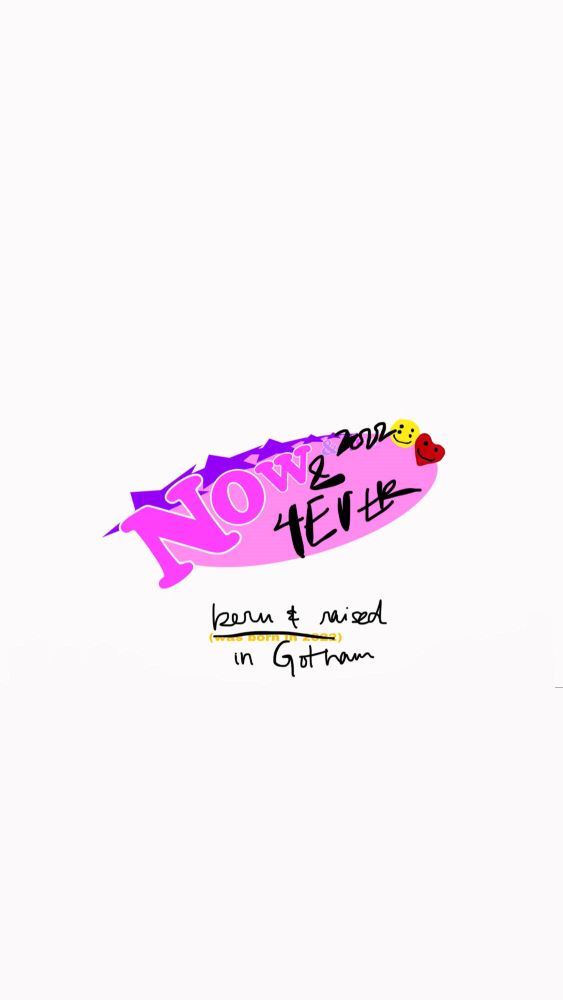 Now & 2022
&
4EVER
born & raised
(was born in 2022)
in Gotham